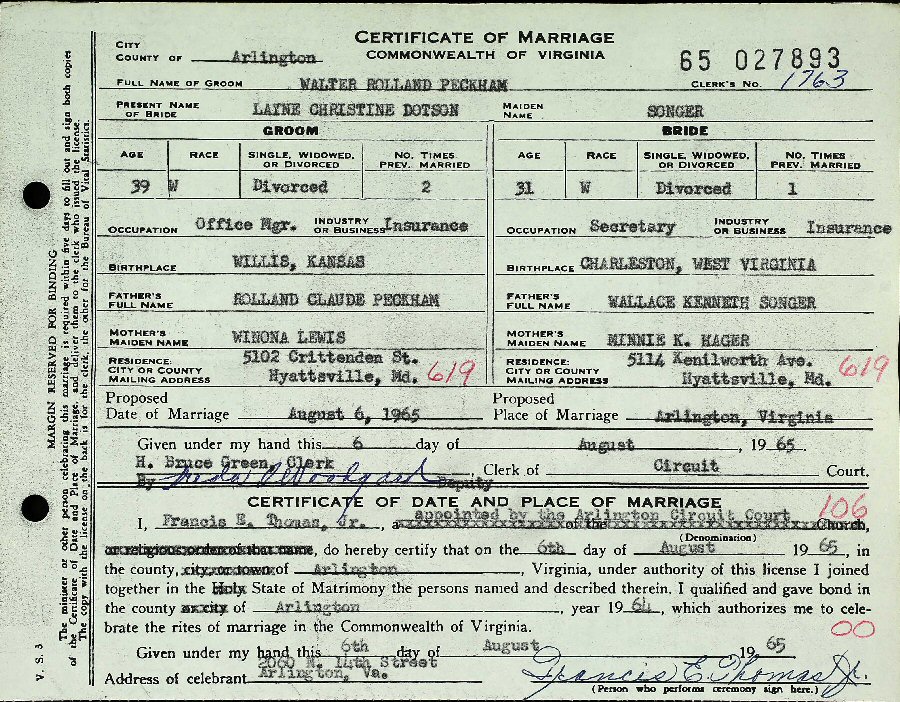 CERTIFICATE OF MARRIAGE
COMMONWEALTH OF VIRGINIA
CITY
COUNTY OF Arlington
65 027893
CLERK'S NO. 1763
FULL NAME OF GROOM WALTER ROLLAND PECKHAM
PRESENT NAME OF BRIDE LAYNE CHRISTINE DOTSON MAIDEN NAME SONGER
GROOM BRIDE
AGE RACE SINGLE, WIDOWED, OR DIVORCED NO. TIMES PREV. MARRIED AGE RACE SINGLE, WIDOWED, OR DIVORCED NO. TIMES PREV. MARRIED
39 W Divorced 2 31 W Divorced 1
OCCUPATION Office Mgr. INDUSTRY OR BUSINESS Insurance OCCUPATION Secretary INDUSTRY OR BUSINESS Insurance
BIRTHPLACE WILLIS, KANSAS BIRTHPLACE CHARLESTON, WEST VIRGINIA
FATHER'S FULL NAME ROLLAND CLAUDE PECKHAM FATHER'S FULL NAME WALLACE KENNETH SONGER
MOTHER'S MAIDEN NAME WINONA LEWIS MOTHER'S MAIDEN NAME MINNIE K. HAGER
RESIDENCE: CITY OR COUNTY MAILING ADDRESS 5102 Crittenden St. Hyattsville, Md. 619 RESIDENCE: CITY OR COUNTY MAILING ADDRESS 5114 Kenilworth Ave. Hyattsville, Md. 619
Proposed Date of Marriage August 6, 1965 Proposed Place of Marriage Arlington, Virginia
Given under my hand this 6 day of August, 1965
H. Bruce Green, Clerk
By Deputy, Clerk of Circuit Court.
CERTIFICATE OF DATE AND PLACE OF MARRIAGE 106
I, Francis E. Thomas, Jr., a appointed by the Arlington Circuit Court of the Church,
(Denomination)
or religious order of that name, do hereby certify that on the 6th day of August 1965, in
the county, city, or town of Arlington, Virginia, under authority of this license I joined
together in the Holy State of Matrimony the persons named and described therein. I qualified and gave bond in
the county or city of Arlington, year 1964, which authorizes me to cele-
brate the rites of marriage in the Commonwealth of Virginia. 00
Given under my hand this 6th day of August 1965
Address of celebrant 2060 N. 14th Street
Arlington, Va. Francis E. Thomas Jr.
(Person who performs ceremony sign here.)
MARGIN RESERVED FOR BINDING
The minister or other person celebrating this marriage is required within five days to fill out and sign both copies
of the Certificate of Date and Place of Marriage, and deliver them to the clerk who issued the license.
The copy with the license on the back is for the clerk, the other for the Bureau of Vital Statistics.
V. S. 3